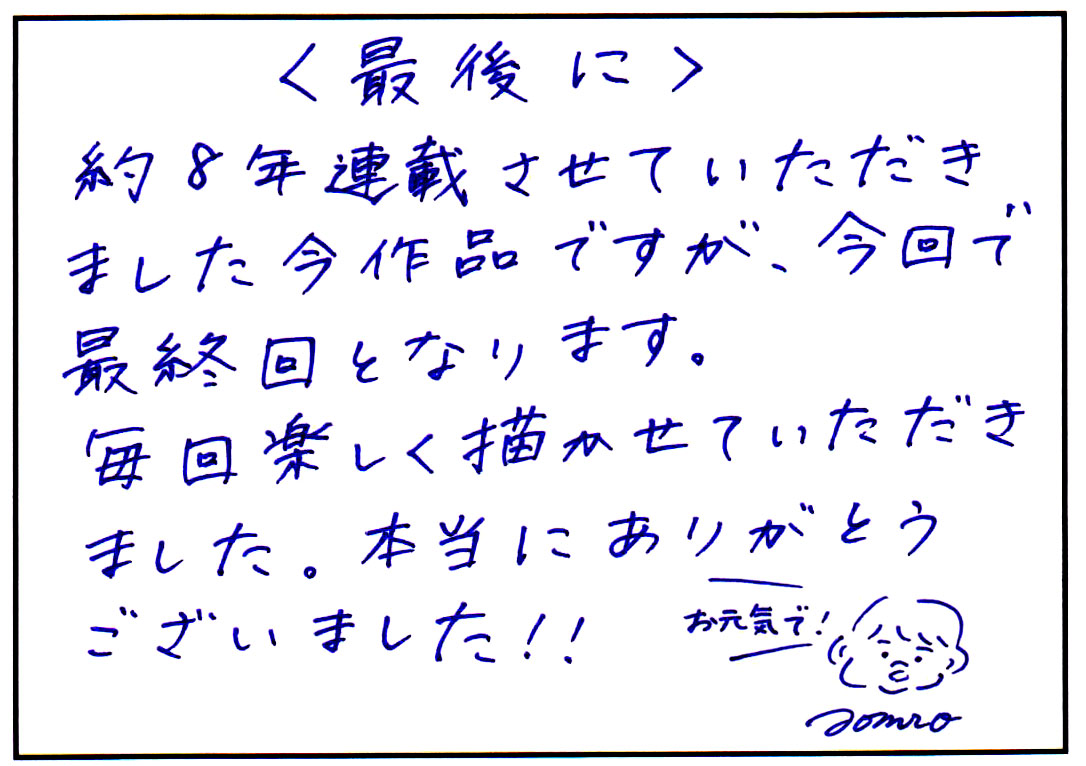 〈最後に〉
約8年連載させていただき
ました今作品ですが、今回で
最終回となります。
毎回楽しく描かせていただき
ました。本当にありがとう
ございました!!
お元気で!